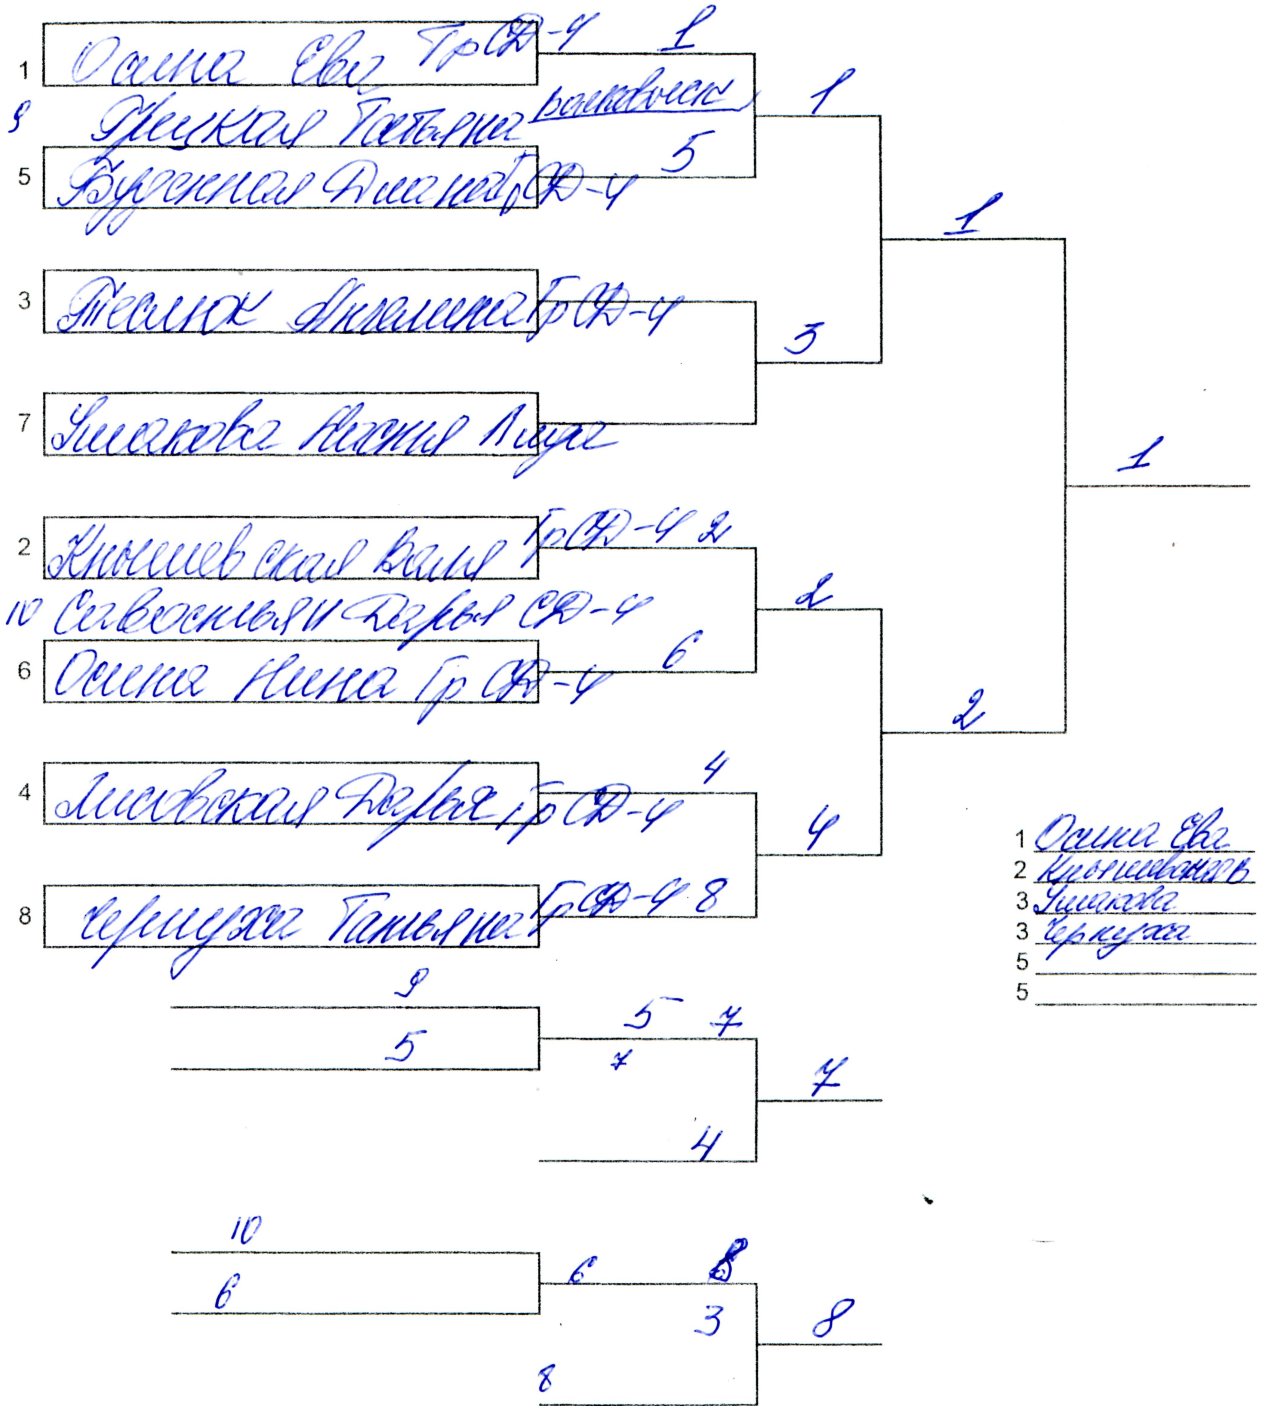 1 Осина Ева ГрСД-4 1
9 Грецкая Татьяна Волковыск 1
5 Буденная Диана ГрСД-4 5
1
3 Теслюк Ангелина ГрСД-4
3
7 Ушакова Настя Лида
1
2 Кнышевская Валя ГрСД-4 2
10 Савостьян Дарья СД-4 2
6 Осина Нина ГрСД-4 6
2
4 Лисовская Дарья ГрСД-4 4
4
8 Чернуха Татьяна ГрСД-4 8
1 Осина Ева
2 Кнышевская В
3 Ушакова
3 Чернуха
5
5
9
5 5 7
7 7
4
10
6 6 8
3 8
8